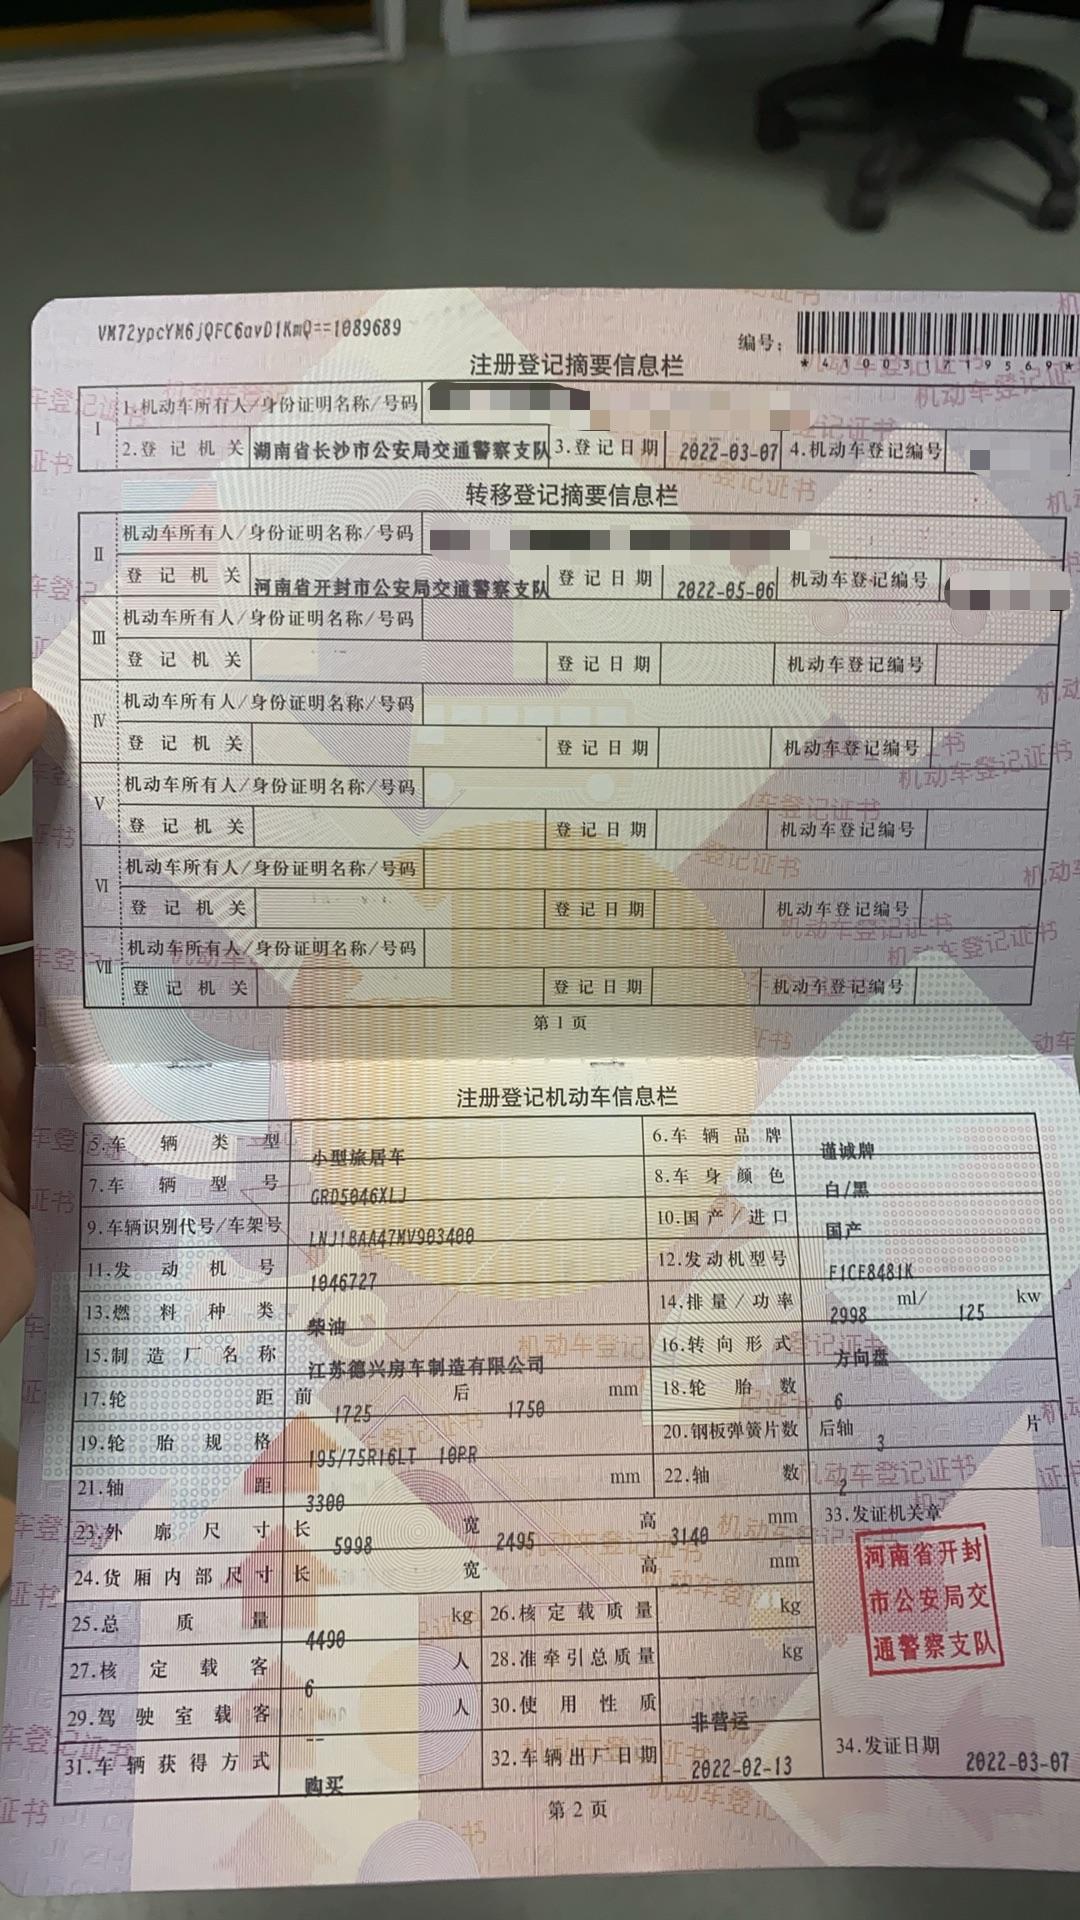 VM72ypcYM6jQFC6avD1KmQ==1089689
编号：
*410031719569*
注册登记摘要信息栏
Ⅰ 1.机动车所有人/身份证明名称/号码
2.登记机关 湖南省长沙市公安局交通警察支队 3.登记日期 2022-03-07 4.机动车登记编号
转移登记摘要信息栏
Ⅱ 机动车所有人/身份证明名称/号码
登记机关 河南省开封市公安局交通警察支队 登记日期 2022-05-06 机动车登记编号
Ⅲ 机动车所有人/身份证明名称/号码
登记机关 登记日期 机动车登记编号
Ⅳ 机动车所有人/身份证明名称/号码
登记机关 登记日期 机动车登记编号
Ⅴ 机动车所有人/身份证明名称/号码
登记机关 登记日期 机动车登记编号
Ⅵ 机动车所有人/身份证明名称/号码
登记机关 登记日期 机动车登记编号
Ⅶ 机动车所有人/身份证明名称/号码
登记机关 登记日期 机动车登记编号
第1页
注册登记机动车信息栏
5.车辆类型 小型旅居车 6.车辆品牌 谨诚牌
7.车辆型号 GRD5046XLJ 8.车身颜色 白/黑
9.车辆识别代号/车架号 LNJ1BAA47MV903400 10.国产/进口 国产
11.发动机号 1046727 12.发动机型号 F1CE8481K
13.燃料种类 柴油 14.排量/功率 2998 ml/ 125 kw
15.制造厂名称 江苏德兴房车制造有限公司 16.转向形式 方向盘
17.轮距 前 1725 后 1750 mm 18.轮胎数 6
19.轮胎规格 195/75R16LT 10PR 20.钢板弹簧片数 后轴 3 片
21.轴距 3300 mm 22.轴数 2
23.外廓尺寸 长 5998 宽 2495 高 3140 mm 33.发证机关章
24.货厢内部尺寸 长 宽 高 -- mm
25.总质量 4490 kg 26.核定载质量 kg
27.核定载客 6 人 28.准牵引总质量 -- kg
29.驾驶室载客 -- 人 30.使用性质 非营运
31.车辆获得方式 购买 32.车辆出厂日期 2022-02-13 34.发证日期 2022-03-07
河南省开封
市公安局交
通警察支队
第2页